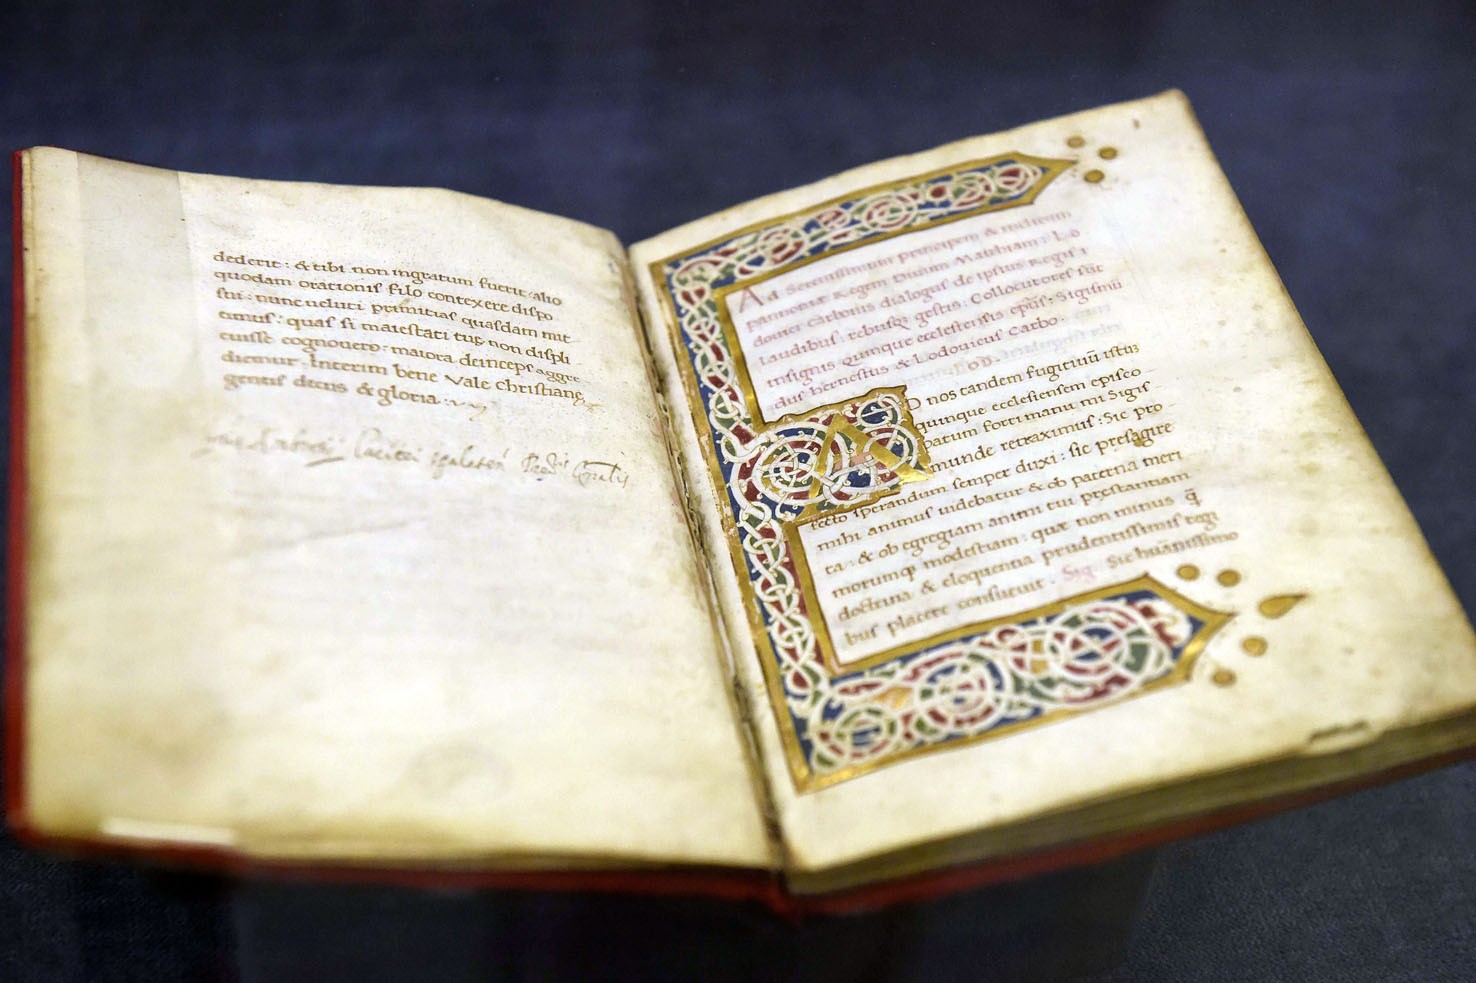 dederit : & tibi non ingratum fuerit : alio
quodam orationis filo contexere dispo
sui : nunc ueluti primitias quasdam mit
timus : quas si maiestati tuę non displi
cuisse cognouero : maiora deinceps aggre
diemur . Interim bene vale christianę
gentis decus & gloria :
Ad Serenissimum principem & inclitum
pannoniæ Regem Diuum Mathiam : Lo
douici carbonis dialogus de ipsius Regis
laudibus : rebusq; gestis : Collocutores sūt
insignis quinque ecclesiensis ep̄us : Sigismū
dus hernestus & Lodouicus Carbo .
AD nos tandem fugitiuū istū
quinque ecclesiensem episco
patum forti manu mi Sigis
munde retraximus : Sic pro
fecto sperandum semper duxi : sic presagire
mihi animus uidebatur & ob paterna meri
ta : & ob egregiam animi tui prestantiam
morumq; modestiam : quæ non minus q̄
doctrina & eloquentia prudentissimis regi
bus placere consueuit . Sig. Sic huānissimo